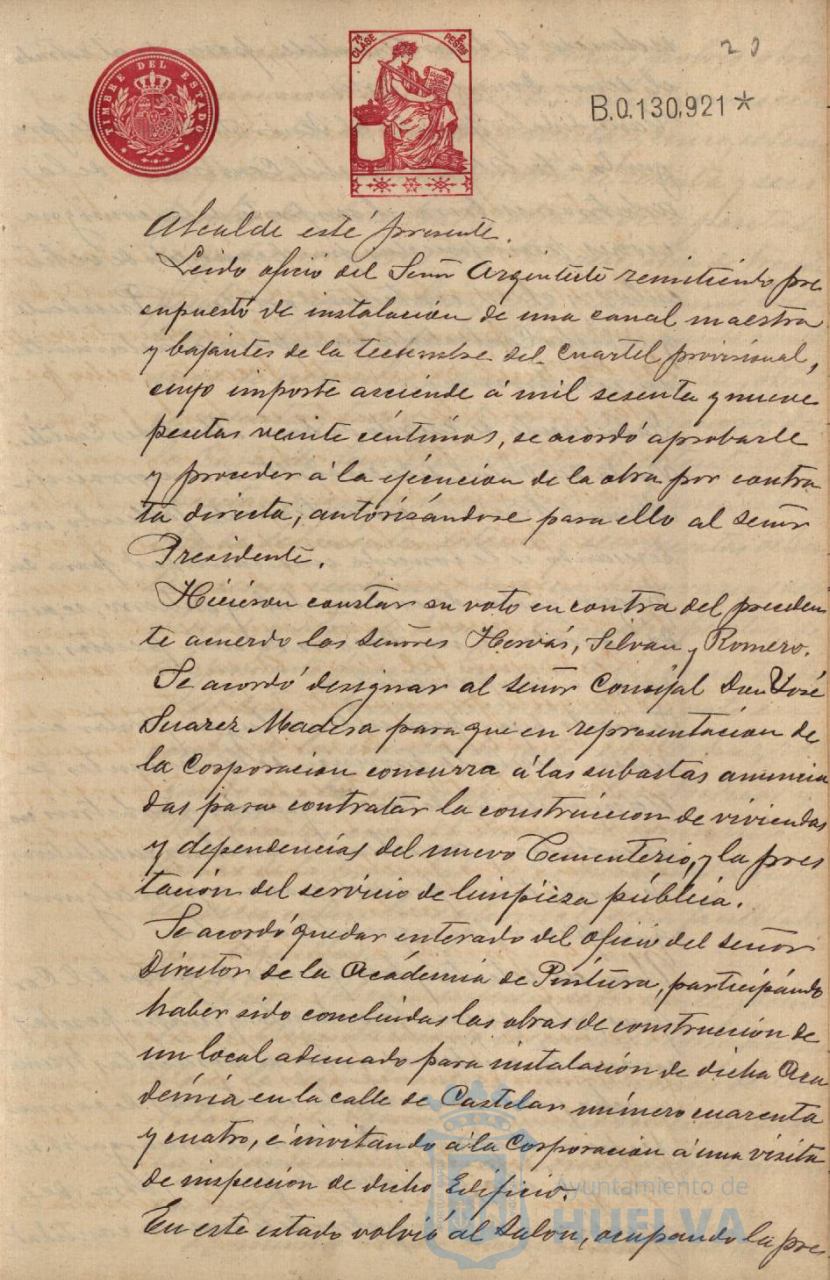 TIMBRE DEL ESTADO
7ª CLASE 2 PESETAS
20
B.0.130,921*
Alcalde esté presente.
Leido oficio del Señor Arquitecto remitiendo pre
supuesto de instalación de una canal maestra
y bajantes de la techumbre del cuartel provisional,
cuyo importe asciende á mil sesenta y nueve
pesetas veinte céntimos, se acordó aprobarle
y proceder á la ejecucion de la obra por contra
ta directa, autorizándose para ello al señor
Presidente.
Hicieron constar su voto en contra del preceden
te acuerdo los señores Hervás, Silvan y Romero.
Se acordó designar al señor Concejal Don José
Suarez Madera para que en representacion de
la Corporacion concurra á las subastas anuncia
das para contratar la construccion de viviendas
y dependencias del nuevo Cementerio, y la pres
tación del servicio de limpieza pública.
Se acordó quedar enterado del oficio del señor
Director de la Académia de Pintura, participando
haber sido concluidas las obras de construcción de
un local adecuado para instalación de dicha Aca
démia en la calle de Castelar número cuarenta
y cuatro, é invitando á la Corporacion á una visita
de inspeccion de dicho Edificio.
En este estado volvió al Salon, ocupando la pre
Ayuntamiento de
HUELVA